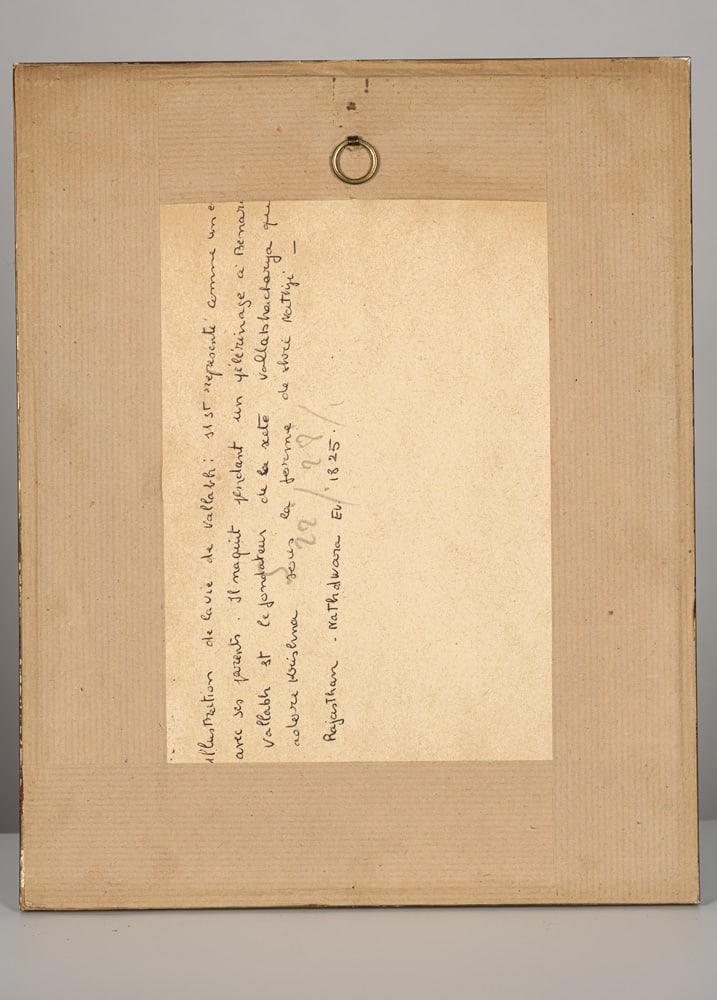 illustration de la vie de Vallabh : il st représenté comme un e
avec ses parents. Il naquit pendant un pélerinage a Benar
Vallabh st le fondateur de la secte Vallabhacharya qu
adore Krishna sous la forme de Shri Nathji —
Rajasthan . Nathdwara Ev. 1825.
22 / 28 /